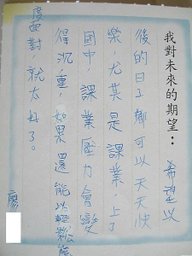 我對未來的期望：希望以
後的日子都可以天天快
樂，尤其是課業，上了
國中，課業壓力會變
得沉重，如果還能以輕鬆態
度面對，就太好了。
廖